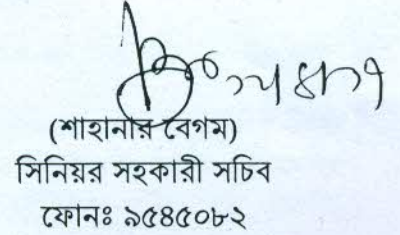 (শাহানার বেগম)
সিনিয়র সহকারী সচিব
ফোনঃ ৯৫৪৫০৮২